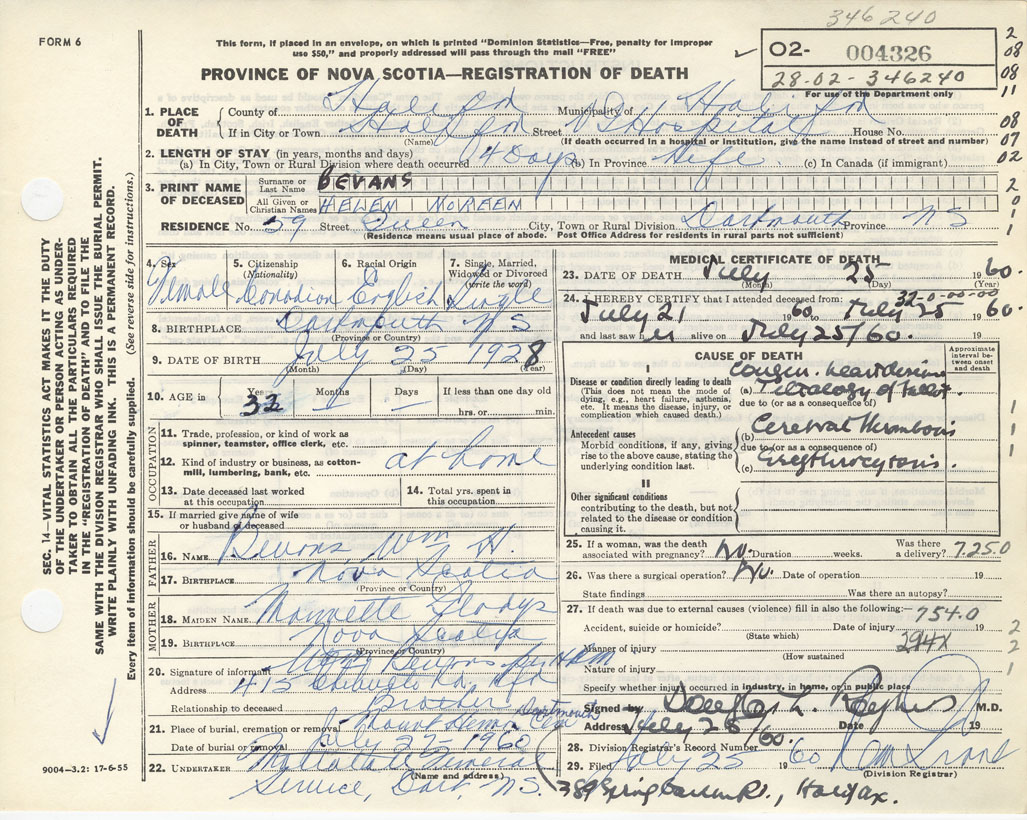 346240
FORM 6
This form, if placed in an envelope, on which is printed "Dominion Statistics—Free, penalty for improper
use $50," and properly addressed will pass through the mail "FREE"
PROVINCE OF NOVA SCOTIA—REGISTRATION OF DEATH
02- 004326
28-02-346240
For use of the Department only
2
08
08
11
08
07
02
2
0
1
1
1. PLACE OF DEATH
County of Halifax Municipality of Halifax
If in City or Town Halifax Street V S Hospital House No.
(Name) (If death occurred in a hospital or institution, give the name instead of street and number)
2. LENGTH OF STAY (in years, months and days)
(a) In City, Town or Rural Division where death occurred 4 Days (b) In Province Life (c) In Canada (if immigrant)
3. PRINT NAME OF DECEASED
Surname or Last Name BEVANS
All Given or Christian Names HELEN NOREEN
RESIDENCE No. 59 Street Queen City, Town or Rural Division Dartmouth Province NS
(Residence means usual place of abode. Post Office Address for residents in rural parts not sufficient)
4. Sex Female
5. Citizenship (Nationality) Canadian
6. Racial Origin English
7. Single, Married, Widowed or Divorced (write the word) Single
8. BIRTHPLACE Dartmouth NS
(Province or Country)
9. DATE OF BIRTH July 25 1928
(Month) (Day) (Year)
10. AGE in Years 32 Months – Days – If less than one day old
hrs. or min.
OCCUPATION
11. Trade, profession, or kind of work as spinner, teamster, office clerk, etc.
12. Kind of industry or business, as cotton-mill, lumbering, bank, etc. at home
13. Date deceased last worked at this occupation
14. Total yrs. spent in this occupation
15. If married give name of wife or husband of deceased
FATHER
16. NAME Bevans Wm H.
17. BIRTHPLACE Nova Scotia
(Province or Country)
MOTHER
18. MAIDEN NAME Gladys
19. BIRTHPLACE Nova Scotia
(Province or Country)
20. Signature of informant Bevans
Address 415 Chebucto Rd
Relationship to deceased brother
21. Place of burial, cremation or removal Mount Hermon Dartmouth
Date of burial or removal July 27-1960
22. UNDERTAKER Funeral
(Name and address)
Service, Dart, N.S.
MEDICAL CERTIFICATE OF DEATH
23. DATE OF DEATH July 25 1960.
(Month) (Day)
32-0-00-00
24. I HEREBY CERTIFY that I attended deceased from:
July 21 1960 to July 25 1960.
and last saw her alive on July 25/60.
CAUSE OF DEATH
Approximate interval between onset and death
I
Disease or condition directly leading to death
(This does not mean the mode of dying, e.g., heart failure, asthenia, etc. It means the disease, injury, or complication which caused death.)
Congen. heart disease
(a) Tetralogy of Fallot
due to (or as a consequence of)
Antecedent causes
Morbid conditions, if any, giving rise to the above cause, stating the underlying condition last.
(b) Cerebral Thrombosis
due to (or as a consequence of)
(c) Erythrocytosis.
II
Other significant conditions
contributing to the death, but not related to the disease or condition causing it.
1
1
1
25. If a woman, was the death associated with pregnancy? No. Duration weeks. Was there a delivery? 7.25.0
26. Was there a surgical operation? No. Date of operation 19
State findings Was there an autopsy?
27. If death was due to external causes (violence) fill in also the following:— 754.0
Accident, suicide or homicide? Date of injury 19
(State which)
Manner of injury
(How sustained
Nature of injury
Specify whether injury occurred in industry, in home, or in public place
2
2
1
Signed by M.D.
Address July 28/60. Date 19
28. Division Registrar's Record Number
29. Filed July 25 1960
(Division Registrar)
Spring Garden Rd., Halifax.
SEC. 14—VITAL STATISTICS ACT MAKES IT THE DUTY
OF THE UNDERTAKER OR PERSON ACTING AS UNDER-
TAKER TO OBTAIN ALL THE PARTICULARS REQUIRED
IN THE "REGISTRATION OF DEATH" AND TO FILE THE
SAME WITH THE DIVISION REGISTRAR WHO SHALL ISSUE THE BURIAL PERMIT.
WRITE PLAINLY WITH UNFADING INK. THIS IS A PERMANENT RECORD.
Every item of information should be carefully supplied. (See reverse side for instructions.)
9004-3.2: 17-6-55